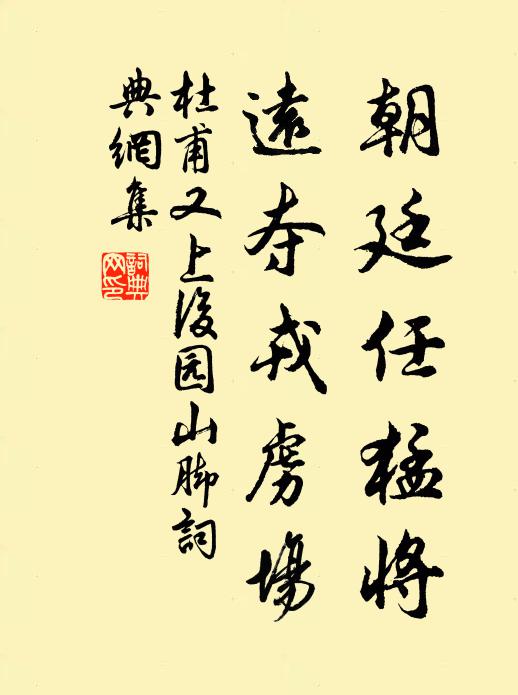 朝廷任猛將
遠夺戎虜場
杜甫又上後园山脚詞
典網集
詞典
网印